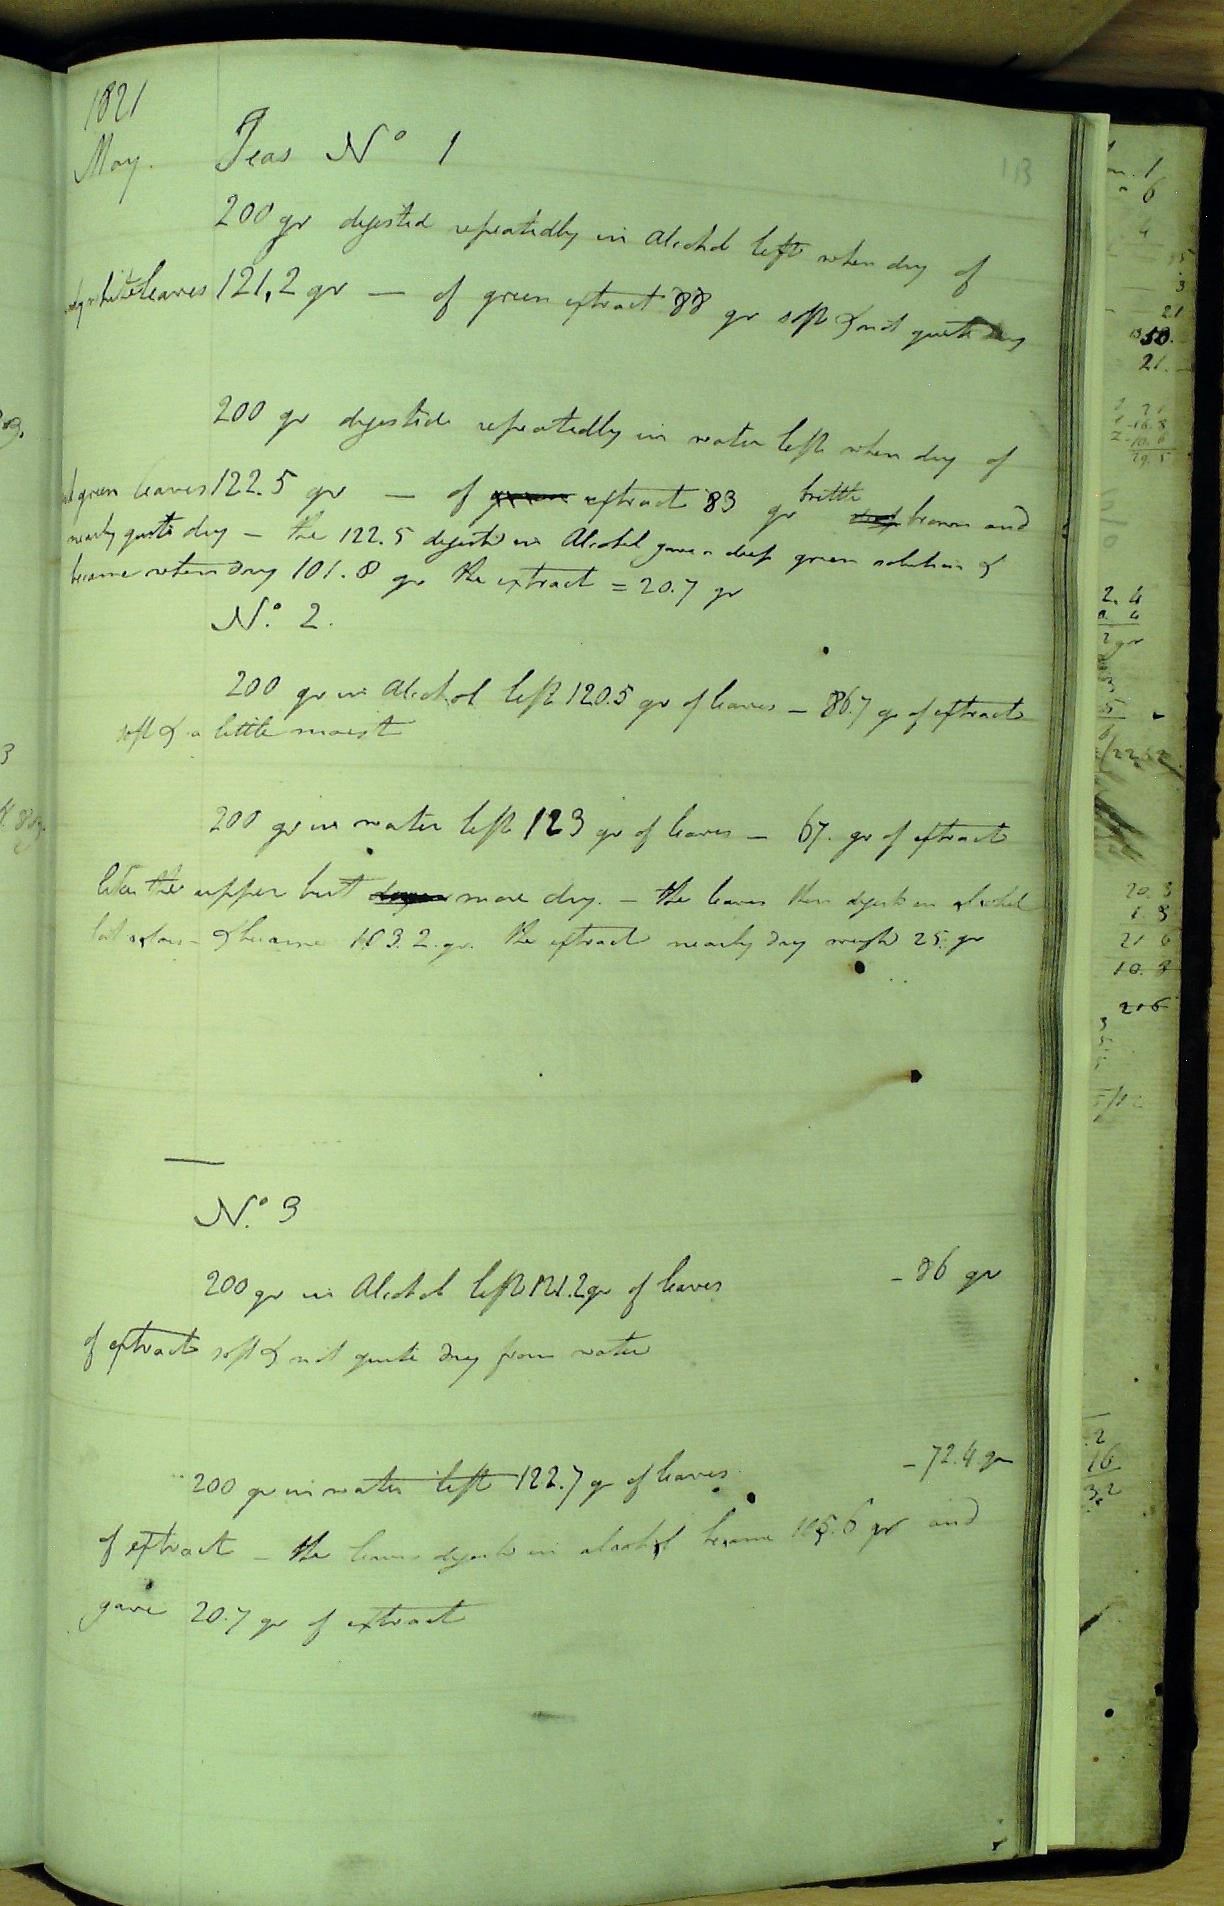 1821
May. Teas No 1
113
200 gr digested repeatedly in Alcohol left when dry of
white leaves 121,2 gr — of green extract 88 gr soft & not quite dry
200 gr digested repeatedly in water left when dry of
green leaves 122.5 gr — of green extract 83 gr brittle brown and
nearly quite dry — the 122.5 digested in Alcohol gave a deep green solution &
became when dry 101.8 gr the extract = 20.7 gr
No. 2.
200 gr in Alcohol left 120.5 gr of leaves — 86.7 gr of extract
soft & a little moist
200 gr in water left 123 gr of leaves — 67. gr of extract
like the upper but more dry. — the leaves then digested in alcohol
& became 103.2. gr. the extract nearly dry weighed 25. gr
No. 3
200 gr in Alcohol left 121.2 gr of leaves — 86 gr
of extract soft & not quite dry from water
200 gr in water left 122.7 gr of leaves — 72.4 gr
of extract — the leaves digested in alcohol became 105.6 gr and
gave 20.7 gr of extract